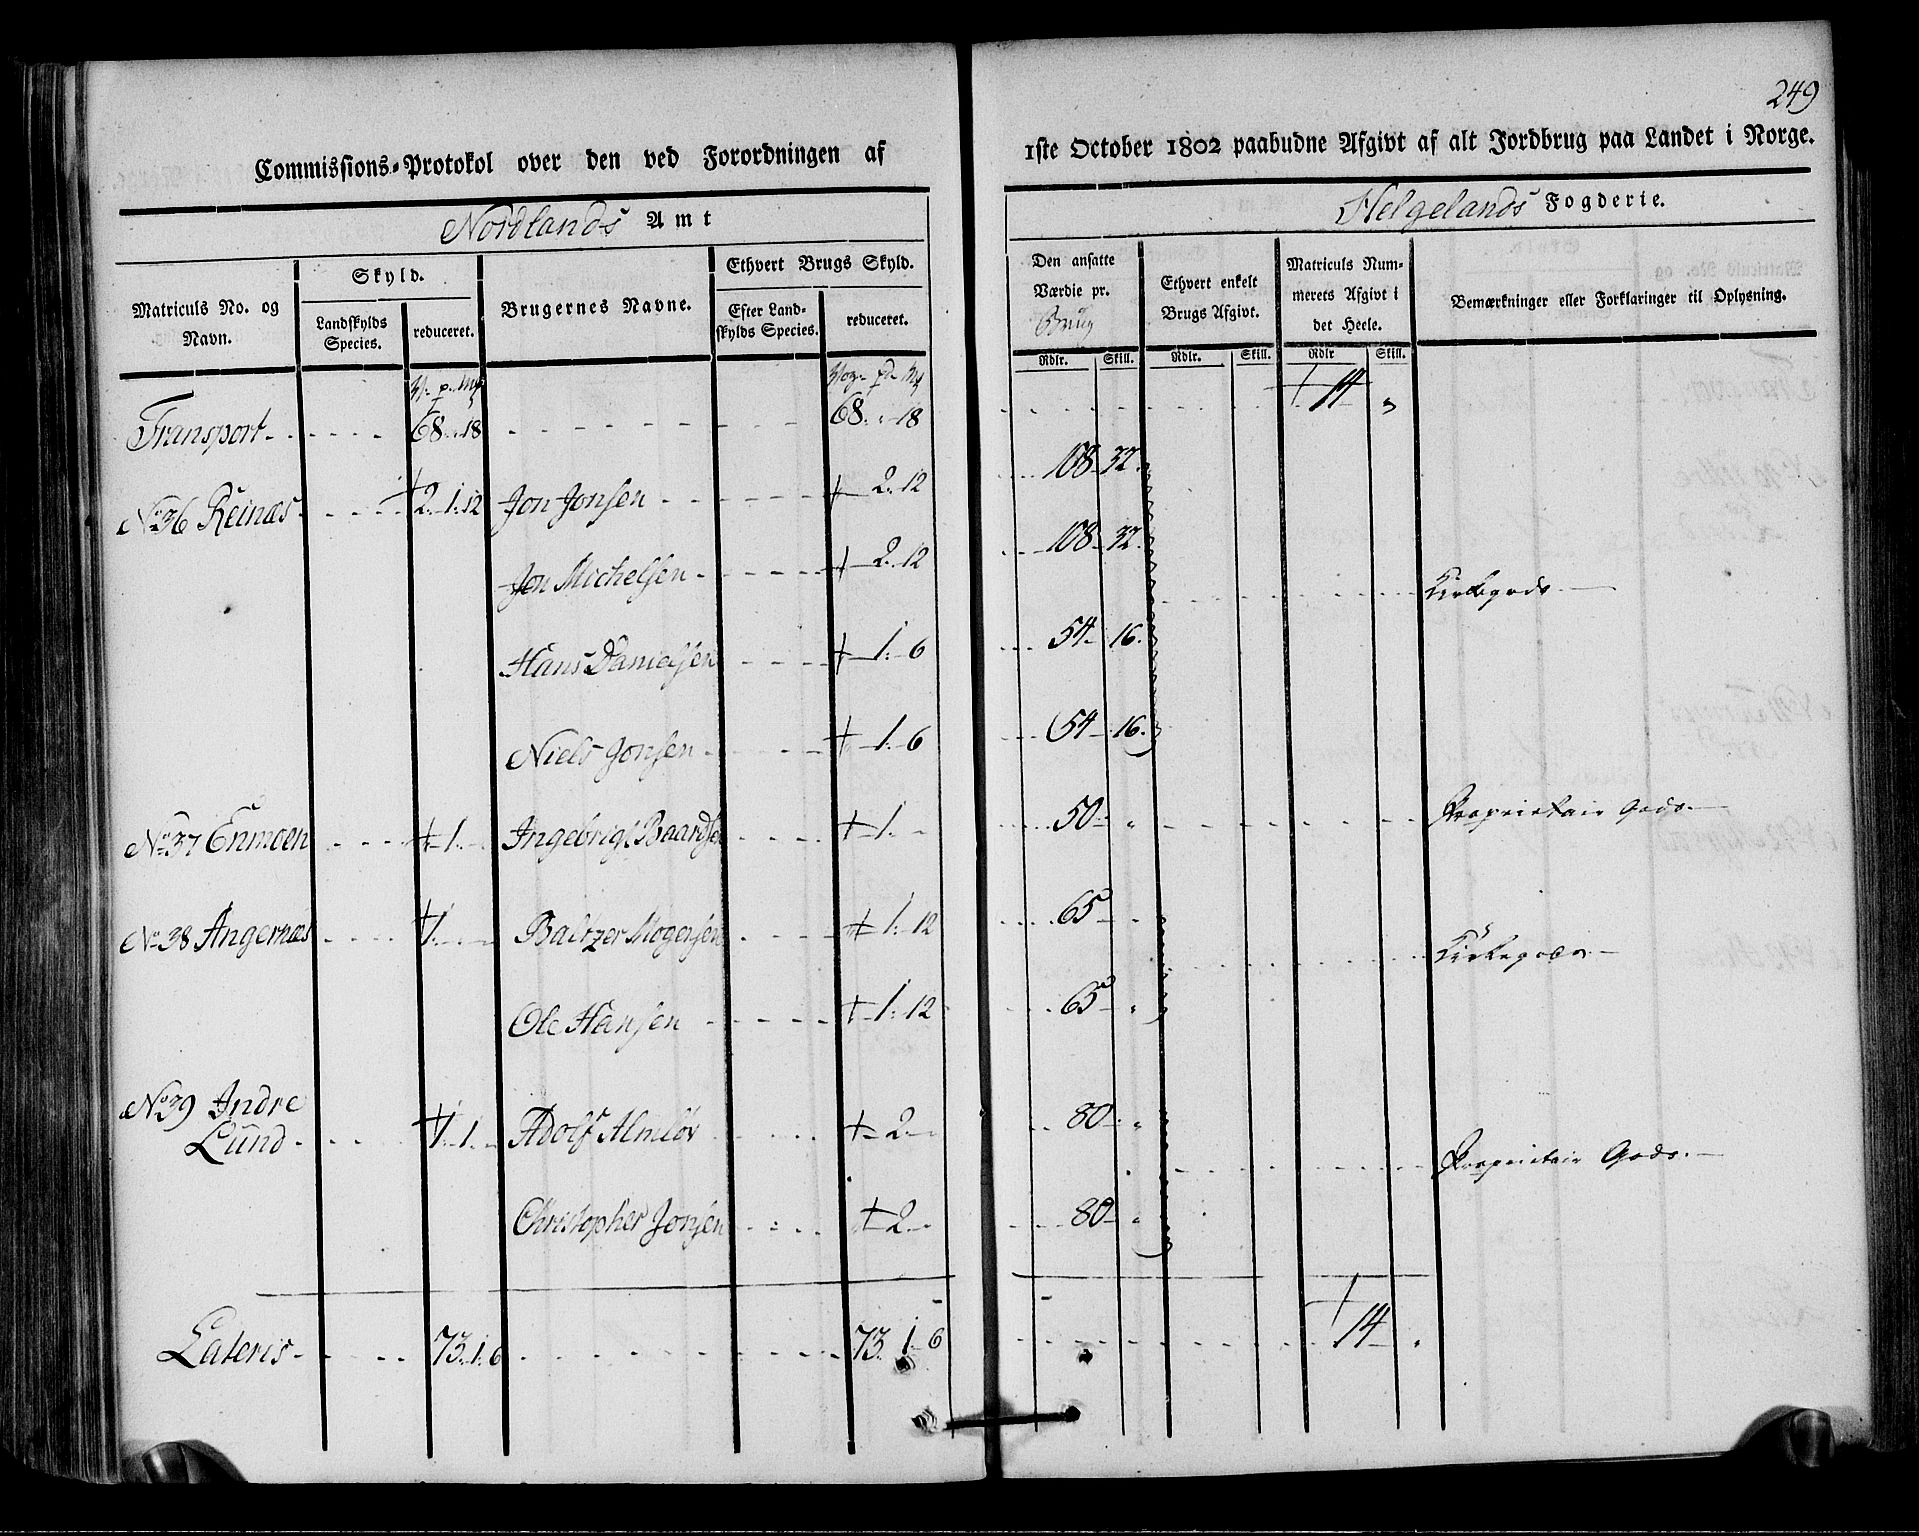 249
Commissions-Protokol over den ved Forordningen af
1ste October 1802 paabudne Afgivt af alt Jordbrug paa Landet i Norge.
Nordlands Amt
Helgelands Fogderie.
Matriculs No. og Navn.
Skyld.
Landskylds Species.
reduceret.
Brugernes Navne.
Ethvert Brugs Skyld.
Efter Landskylds Species.
reduceret.
Den ansatte Værdie pr. Brug
Rdlr. Skill.
Ethvert enkelt Brugs Afgivt.
Rdlr. Skill.
Matriculs Nummerets Afgivt i det Heele.
Rdlr Skill.
Bemærkninger eller Forklaringer til Oplysning.
Transport 68 18 68 18 14 "
No 36 Reinæs 2. 1. 12 Jon Jonsen 2. 12 108 32.
Jon Michelsen 2. 12 108 32. Kirkegods
Hans Danielsen 1. 6 54 16.
Niels Jonsen 1. 6 54 16.
No 37 Enmoen 1. Ingebrigt Baardsen 1. 50 " Proprietair Gods.
No 38 Angernæs 1. Baltzer Mogensen 1. 12 65 " Kirkegods
Ole Hansen 1. 12 65 "
No 39 Indre
Lund 1. 1. Adolf Almløv 2 80 " Proprietair Gods.
Christopher Jonsen 2 80 "
Lateris 73. 1. 6 73. 1. 6 14 "